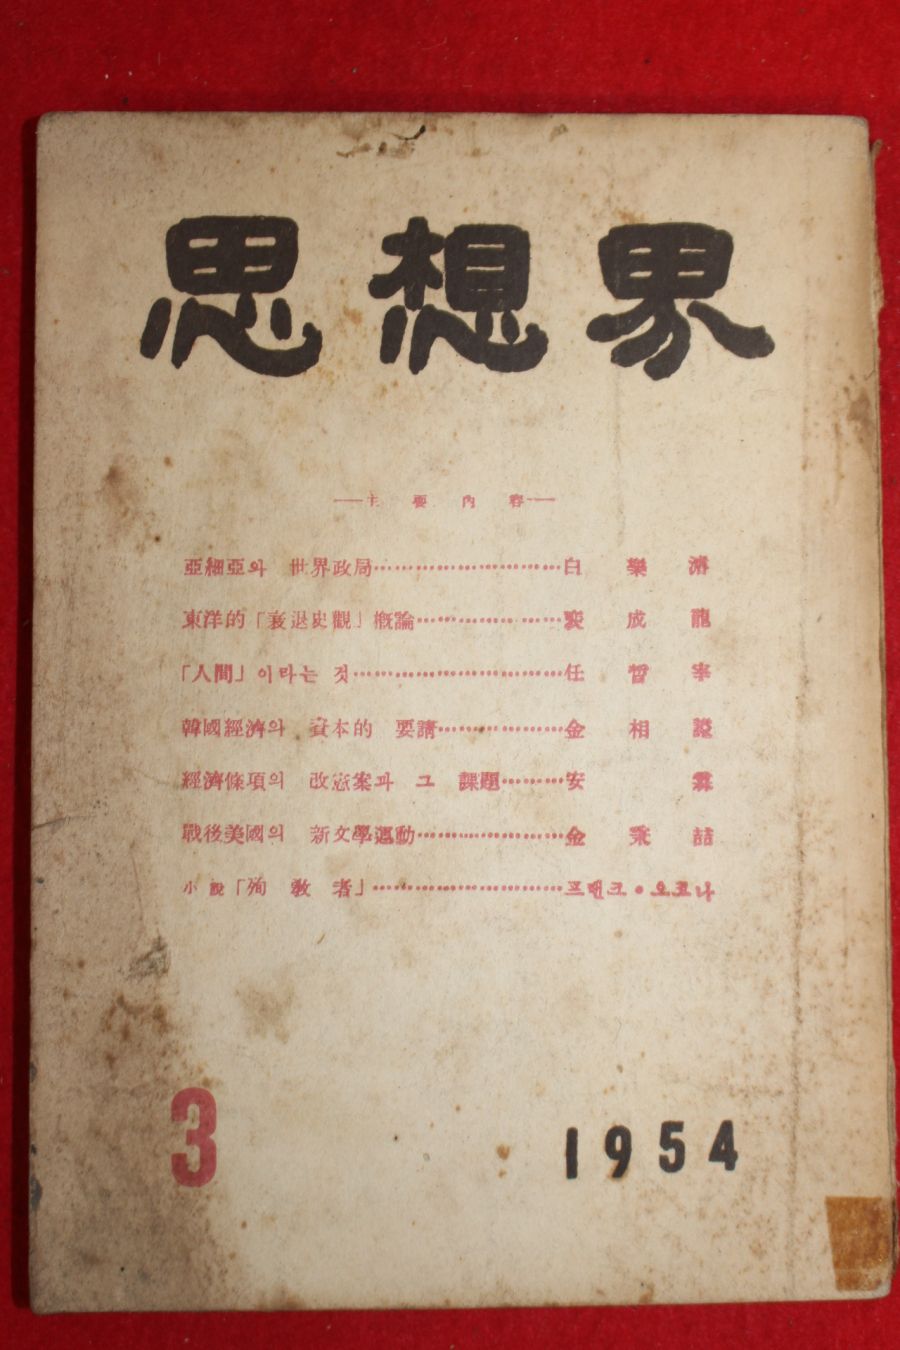 思想界
主要內容
亞細亞와 世界政局……………………白樂濬
東洋的「衰退史觀」槪論……………………裵成龍
「人間」이라는 것……………………任晳宰
韓國經濟의 資本的 要請……………………金相謚
經濟條項의 改憲案과 그 課題………安霖
戰後美國의 新文學運動……………………金秉喆
小說「殉敎者」……………………프랜크・오코나
3
1954